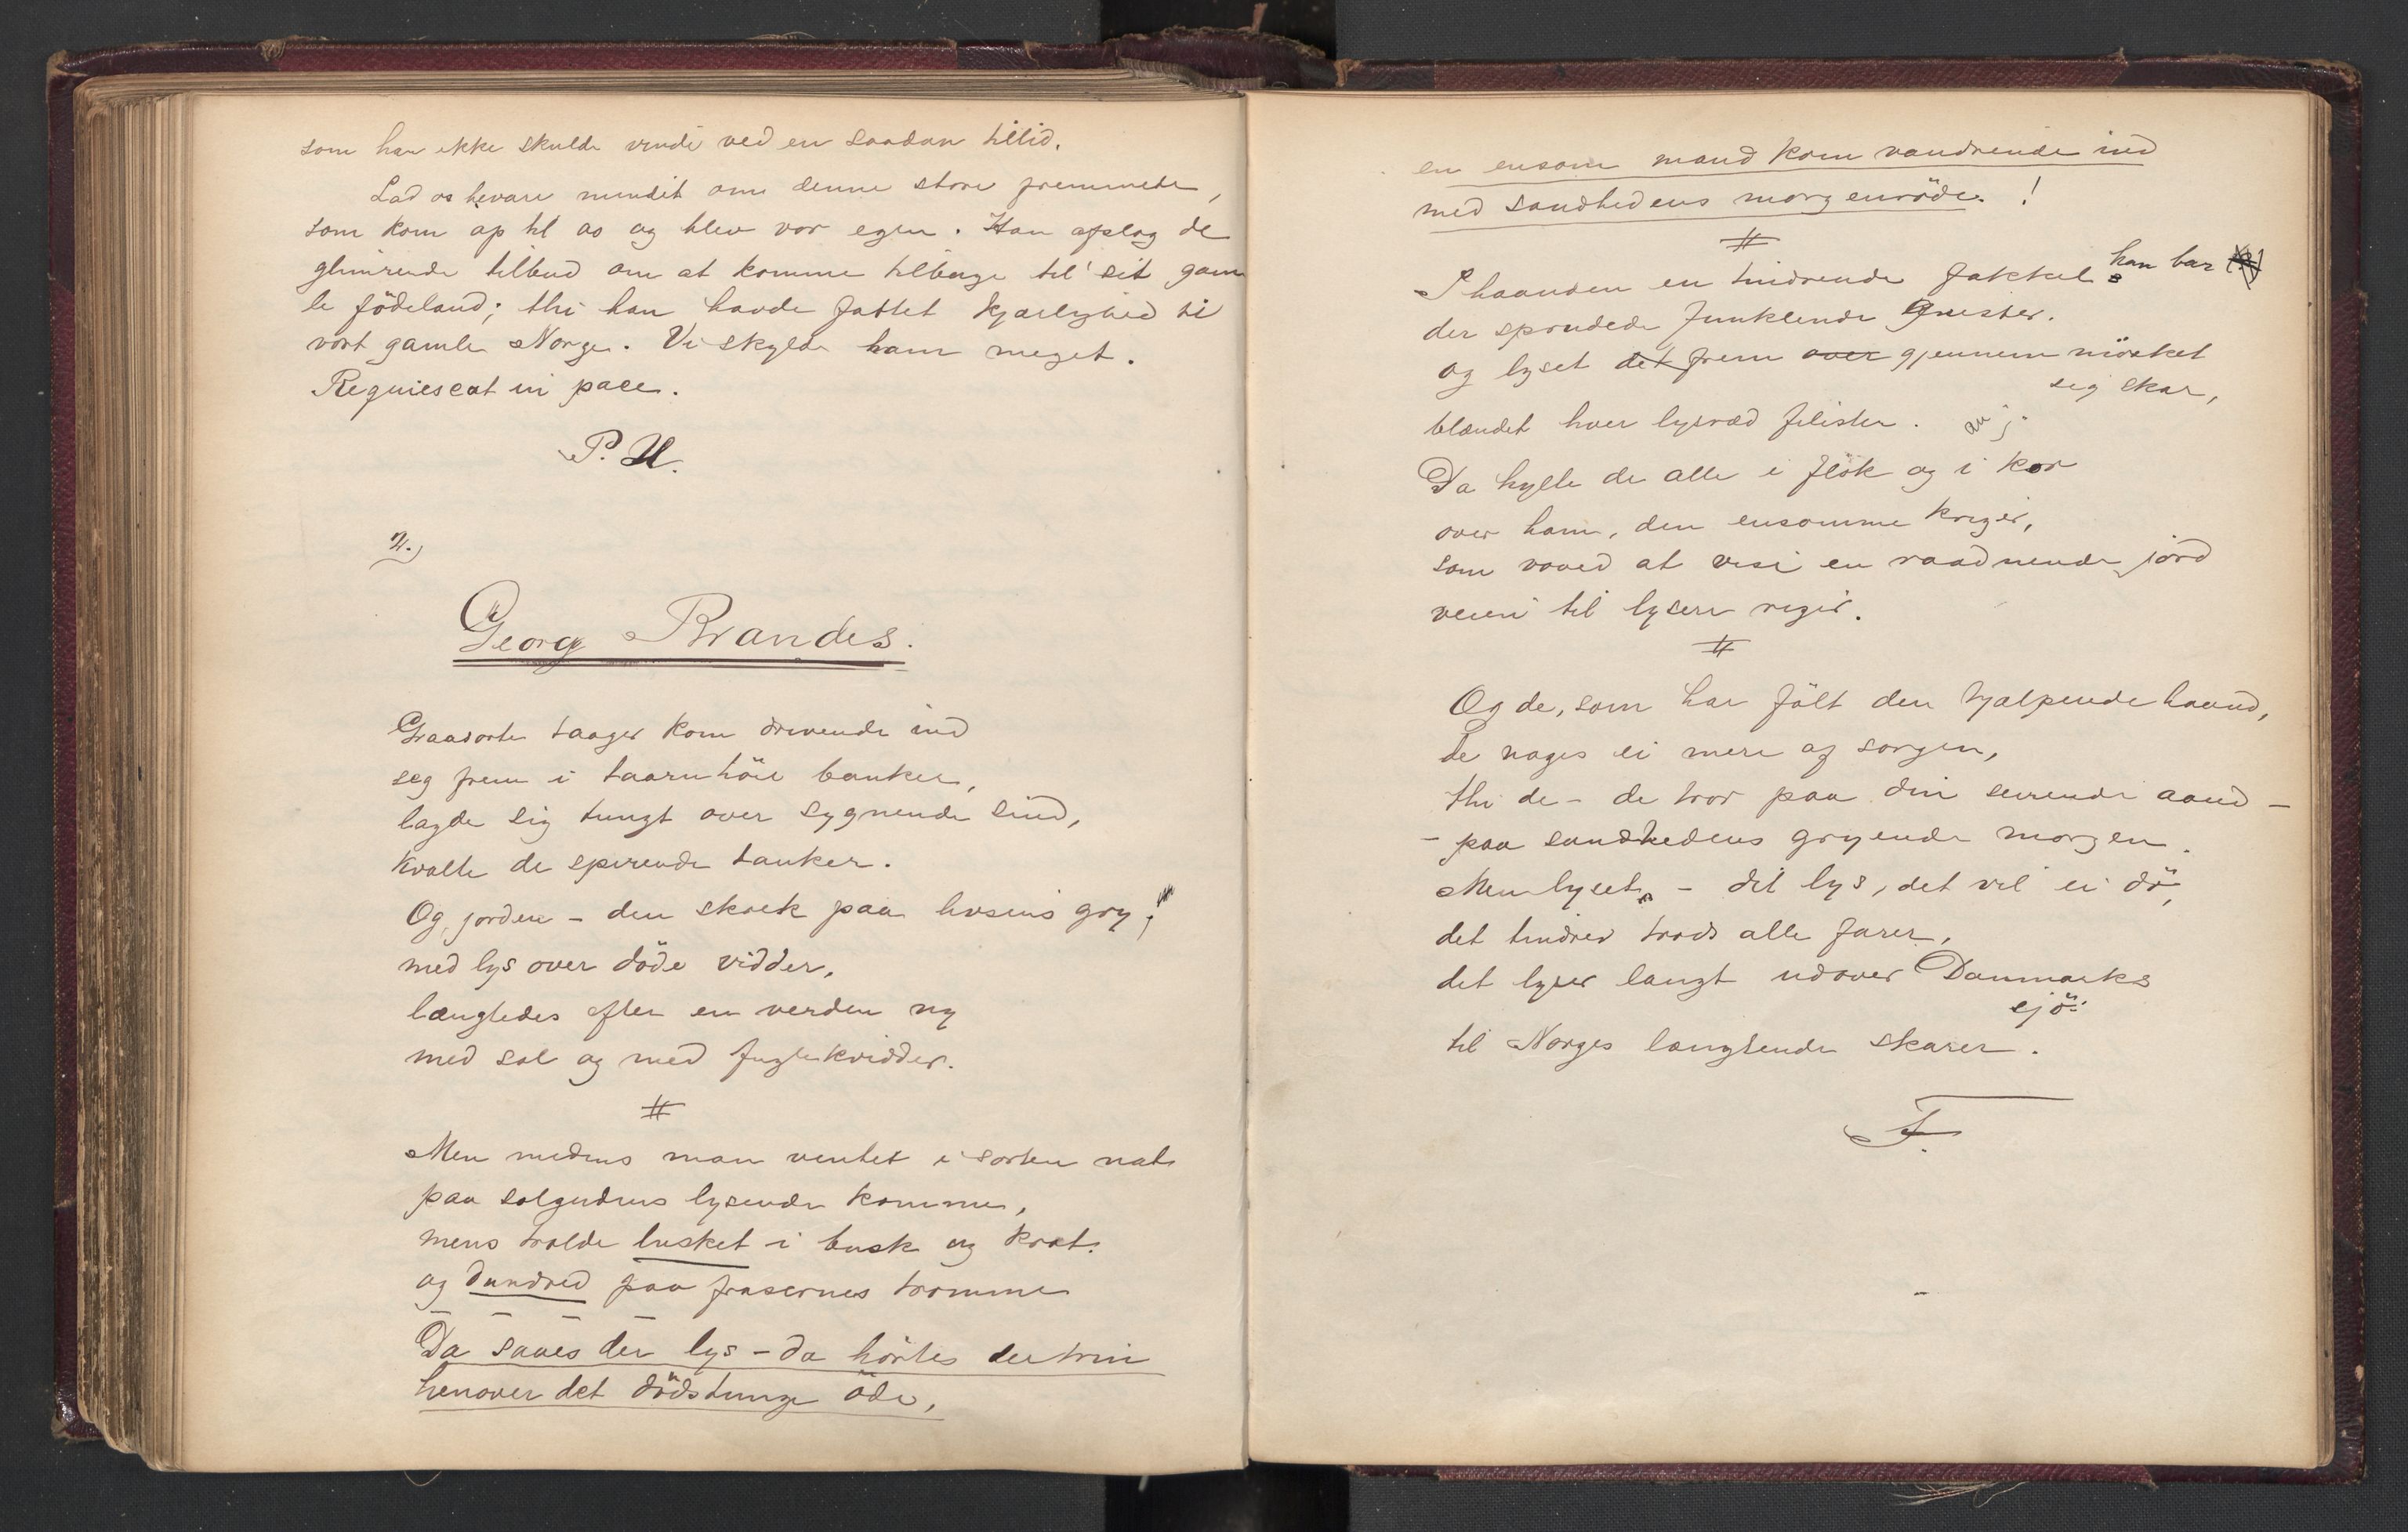 som har ikke skulde vinde ved en saadan tillid.
Lad os bevare mindet om denne store fremmede,
som kom op til os og blev vor egen. Han afslog de
glimrende tilbud om at komme tilbage til sit gam
le födeland; thi han havde fattet kjærlighed til
vort gamle Norge. Vi skylde ham meget.
Requiescat in pace.
P. U.
2.)
Georg Brandes.
Graasorte taager kom drivende ind
seg frem i taarnhöie banker,
lagde sig tungt over sygnende sind,
kvalte de spirende tanker.
Og jorden – den skrek paa livsens gry,
med lys over döde vidder,
længtedes efter en verden ny
med sol og med fuglekvidder.
#
Men medens man ventet i sorten nat
paa solgudens lysende komme,
mens trolde lusket i busk og krat
og dundred paa frasernes tromme
– – – –
Da saaes der lys – da hörtes der trin
henover det dödstunge öde,
en ensom mand kom vandrende ind
med sandhedens morgenröde. !
#
I haanden en tindrende fakkel han bar
der sprudede funklende Gnister.
og lyset det frem over gjennem mörket
sig skar,
blændet hver lysræd filister.
Da hylte de alle i flok og i kor
over ham, den ensomme kriger,
som voved at vise en raadnende jord
veien til lysere riger.
#
Og de, som har fölt den hjælpende haand,
de nages ei mere af sorgen,
thi de – de tror paa din seirende aand –
– paa sandhedens gryende morgen.
Men lyset, – dit lys, det vil ei dö,
det tindrer trods alle farer,
det lyser langt udover Danmarks
sjö
til Norges længtende skarer.
F.